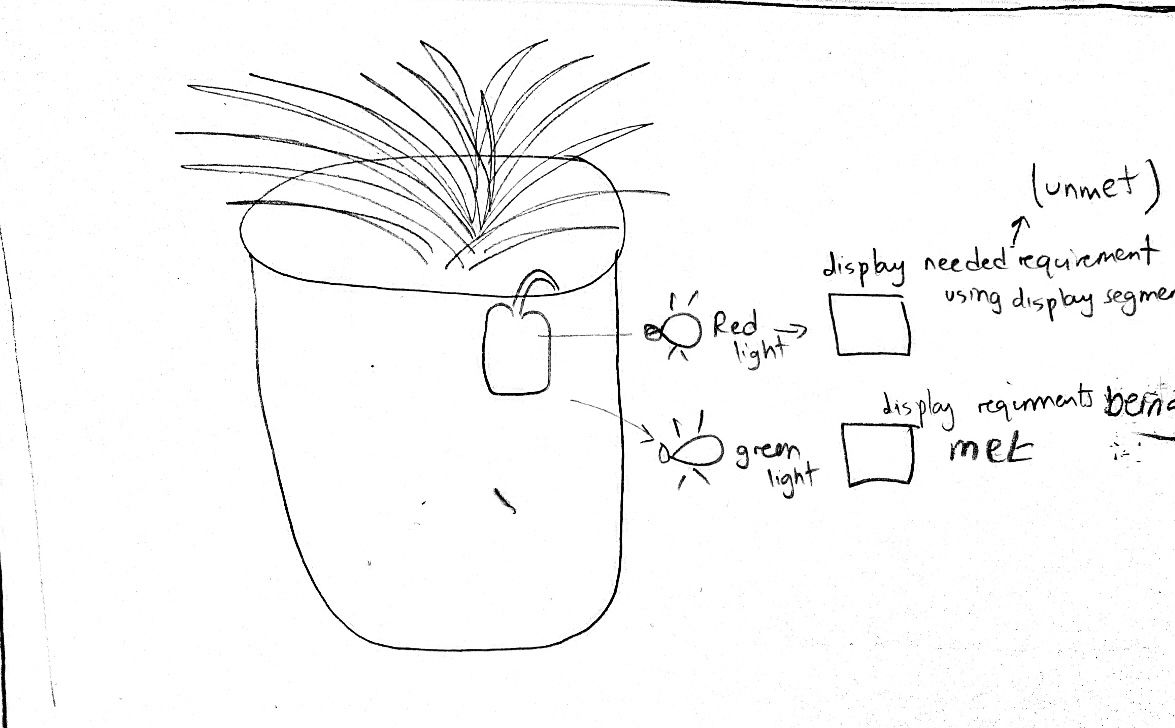 (unmet)
display needed requirement
using display segmen
Red
light
display requirments being
met
green
light